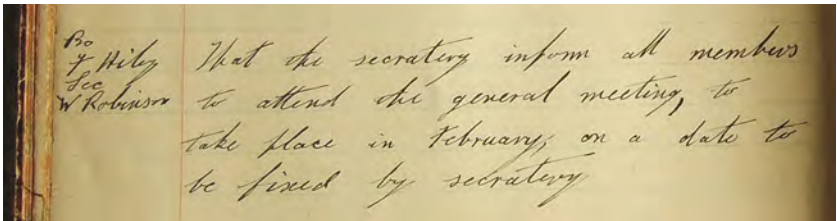 Pro
F Hiley
Sec
W Robinson
That the secratery inform all members
to attend the general meeting, to
take place in February, on a date to
be fixed by secratery